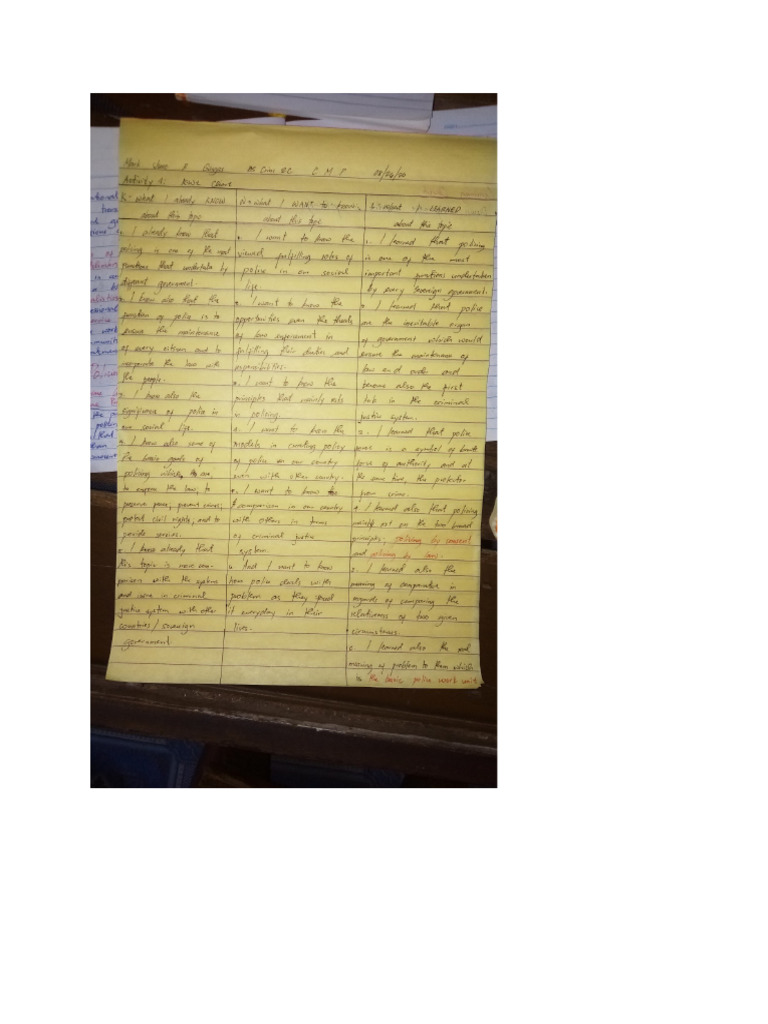 Mark A BS Crim 2C C M P
Activity 1: Kwl Chart
K - What I already KNOW
about this topic
I already know that
policing is one of the real
functions that undertake by
different government.
I know also that the
function of police is to
ensure the maintenance
of every citizen and to
the law with
the people.
I know also the
significance of police in
our social life.
I know also some of
the basic goals of
policing which are,
to enforce the law; to
preserve peace; prevent crimes;
protect civil rights; and to
provide services.
I know already that
this topic is more com-
parison with the system
and in criminal
justice system with other
countries / sovereign
government.
W - What I WANT to know
about this topic
I want to know the
viewed fulfilling roles of
police in our social
life.
I want to know the
opportunities even the threats
of law enforcement in
fulfilling their duties and
responsibilities.
I want to know the
principles that mainly
in policing.
I want to know the
models in creating policy
of police in our country
even with other country.
I want to know
comparison in our country
with others in terms
of criminal justice
system.
And I want to know
how police deals with
problem as they
it everyday in their
lives.
L - What I LEARNED
about the topic
I learned that policing
is one of the most
important functions undertaken
by every sovereign government.
I learned that police
are the inevitable organ
of government which would
ensure the maintenance of
law and order and
also the first
in the criminal
justice system.
I learned that police
is a symbol of brute
force of authority and at
the same time, the protector
from crime.
I learned also that policing
put on the two broad
principles, policing by consent
and policing by law.
I learned also the
meaning of comparative in
regards of comparing the
relativeness of two given
circumstances.
I learned also the real
meaning of problem to them which
is "the basic police work unit